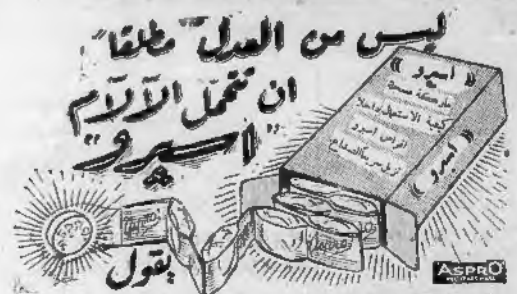 ليس من العدل مطلقا"
ان تتحمل الآلام
"اسبرو"
يقول
((اسبرو))
ماركة مسجلة
كيفية الاستعمال داخلا
اقراص اسبرو
تزيل سريعا الصداع
((اسبرو))
ASPRO
ASPRO